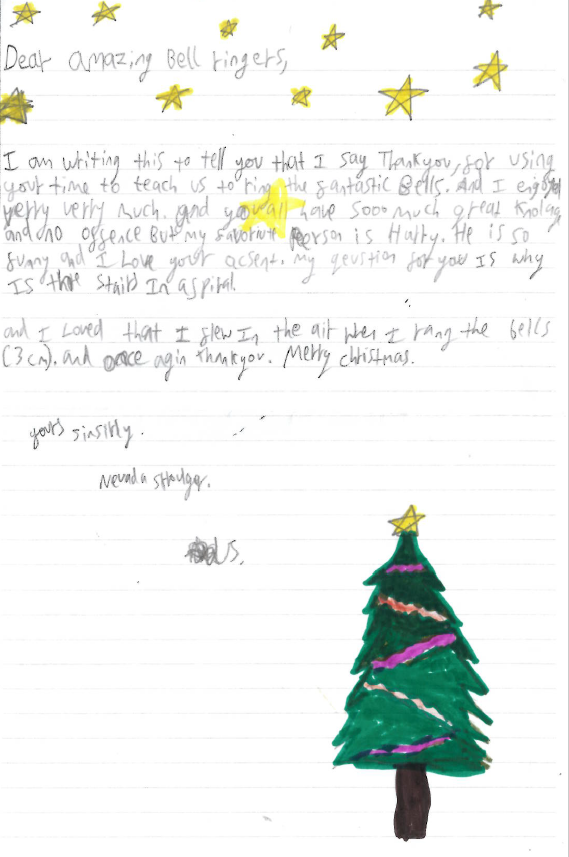 Dear amazing Bell ringers,
I am writing this to tell you that I say Thankyou, for using
your time to teach us to ring the fantastic Bells. And I enjoyed
verry verry much. and you all have sooo much great Knolag
and no offence But my favorite Person is Harry. He is so
funny and I Love your acsent. my qeustion for you Is why
Is the stairs In a spiral.
and I Loved that I flew In the air when I rang the bells
(3cm). and once agin thankyou. Merry christmas.
yours sinsirly.
Nevada